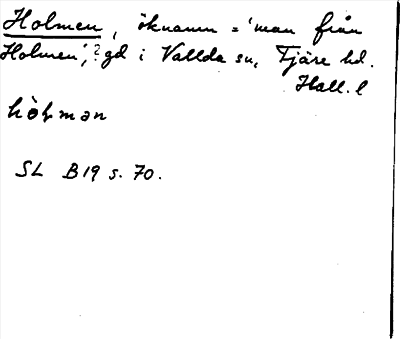 Holmen, öknamn = 'man från
Holmen', ? gd i Vallda sn, Fjäre hd.
Hall. l
hòɫmən
SL B19 s. 70.